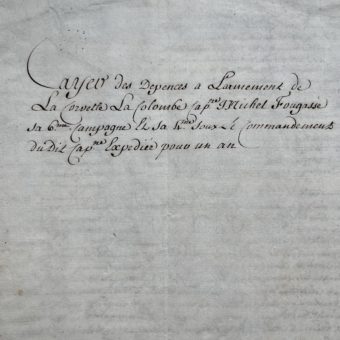 Cayer des Depences a Larmement de
La Corvette La Colombe Cap.ne Michel Fougasse
sa 6.me Campagne Et sa 4.me soux Le Commandement
du Dit Cap.ne Expediér pour un an